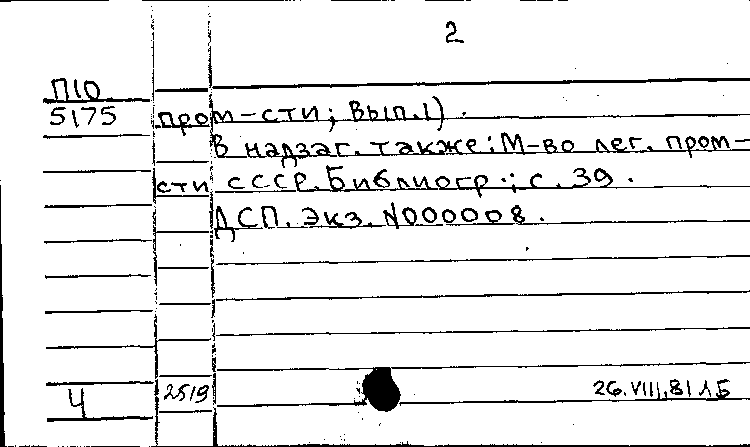 2
П10
5175 пром-сти; Вып.1).
В надзаг. также: М-во лег. пром-
сти СССР. Библиогр.: с. 39.
ДСП. Экз. N000008.
Ч 2519 26.VIII.81 ЛБ